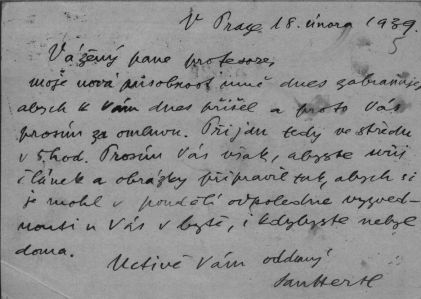 V Praze 18. února 1939.
Vážený pane profesore,
moje nová působnost mně dnes zabraňuje,
abych k Vám dnes přišel a proto Vás
prosím za omluvu. Přijdu tedy ve středu
v 5 hod. Prosím Vás však, abyste svůj
článek a obrázky připravil tak, abych si
je mohl v pondělí odpoledne vyzved-
nouti u Vás v bytě, i kdybyste nebyl
doma.
Uctivě Vám oddaný
Jan Hertl